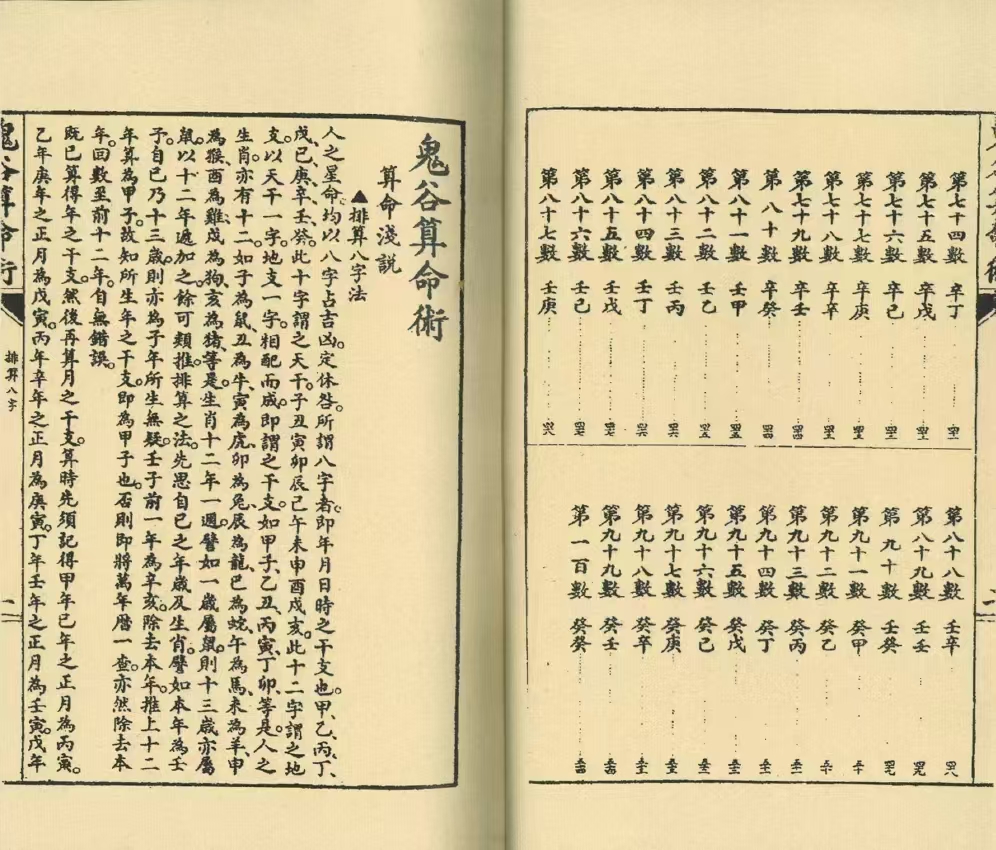 第七十四數 辛丁 四一
第七十五數 辛戊 四二
第七十六數 辛己 四二
第七十七數 辛庚 四三
第七十八數 辛辛 四三
第七十九數 辛壬 四四
第八十數 辛癸 四四
第八十一數 壬甲 四五
第八十二數 壬乙 四五
第八十三數 壬丙 四六
第八十四數 壬丁 四六
第八十五數 壬戊 四七
第八十六數 壬己 四七
第八十七數 壬庚 四八
第八十八數 壬辛 四八
第八十九數 壬壬 四九
第九十數 壬癸 四九
第九十一數 癸甲 五十
第九十二數 癸乙 五十
第九十三數 癸丙 五一
第九十四數 癸丁 五一
第九十五數 癸戊 五二
第九十六數 癸己 五二
第九十七數 癸庚 五三
第九十八數 癸辛 五三
第九十九數 癸壬 五四
第一百數 癸癸 五四
鬼谷算命術
算命淺説
▲排算八字法
人之星命、均以八字占吉凶。定休咎。所謂八字者、即年月日時之干支也。甲、乙、丙、丁、
戊、己、庚、辛、壬、癸。此十字謂之天干。子丑寅卯辰巳午未申酉戌亥。此十二字謂之地
支。以天干一字。地支一字。相配而成。即謂之干支。如甲子、乙丑、丙寅、丁卯、等是。人之
生肖、亦有十二。如子為鼠、丑為牛、寅為虎、卯為兔、辰為龍、巳為蛇、午為馬、未為羊、申
為猴、酉為雞、戌為狗、亥為猪、等是。生肖十二年一週。譬如一歲屬鼠。則十三歲亦屬
鼠。以十二年遞加之。餘可類推。排算之法。先思自己之年歲及生肖。譬如本年為壬
子。自己乃十三歲。則亦為子年所生無疑。壬子前一年為辛亥。除去本年。推上十二
年算為甲子。故知所生年之干支。即為甲子也。否則即將萬年曆一查亦然。除去本
年。回數至前十二年。自無錯誤。
既已算得年之干支。然後再算月之干支。算時先須記得甲年己年之正月為丙寅。
乙年庚年之正月為戊寅。丙年辛年之正月為庚寅。丁年壬年之正月為壬寅。戊年
鬼谷算命術
排算八字
一